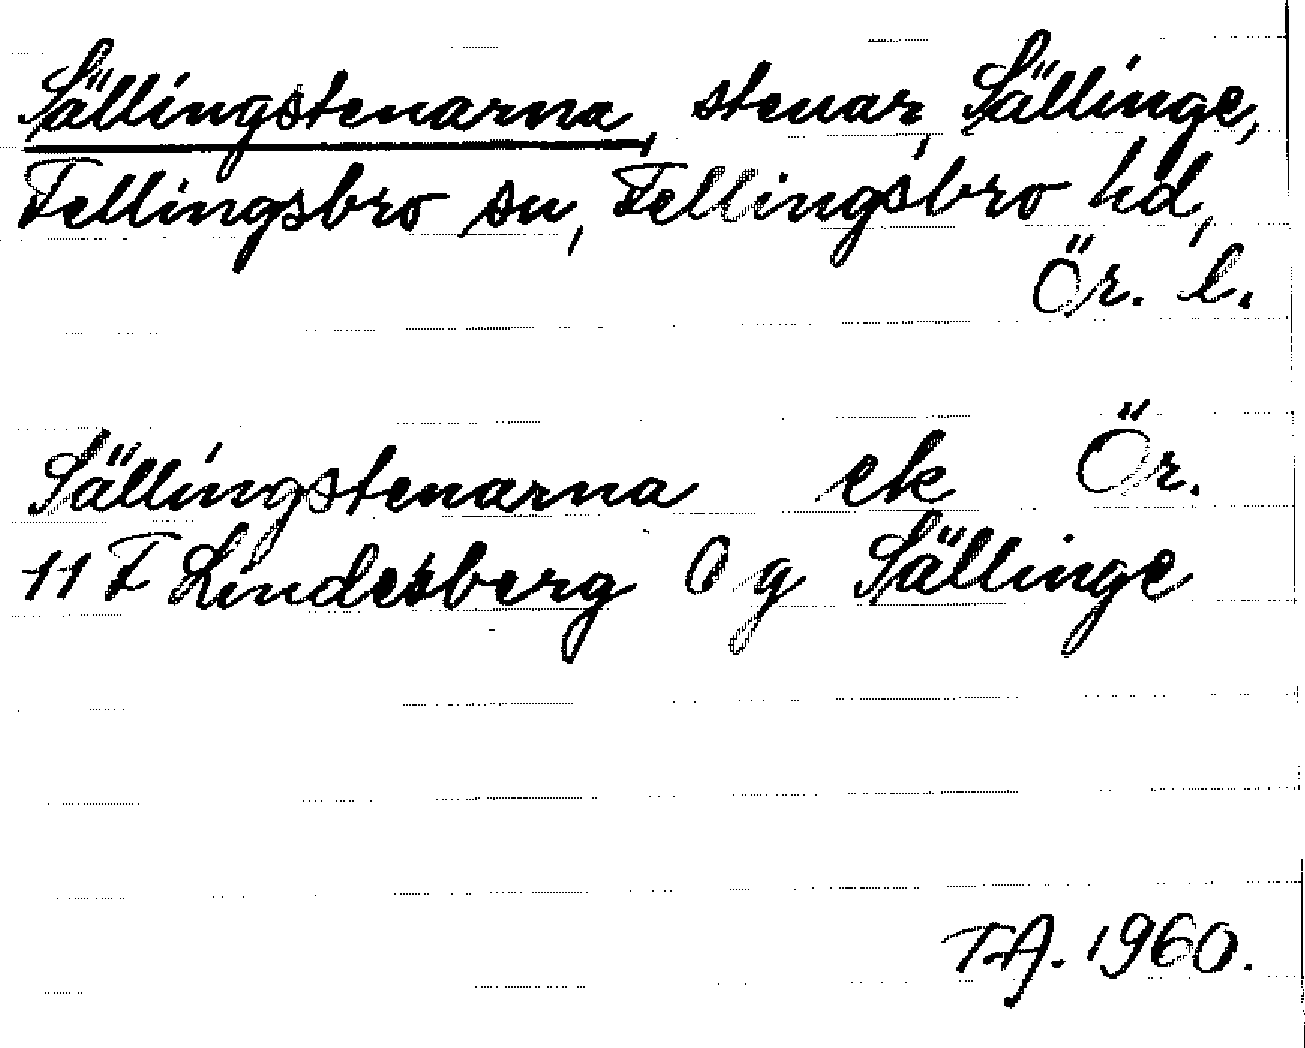 Sällingstenarna, stenar, Sällinge,
Fellingsbro sn, Fellingsbro hd,
Ör. l.
Sällingstenarna ek Ör.
11 F Lindesberg 0 g Sällinge
T.A. 1960.